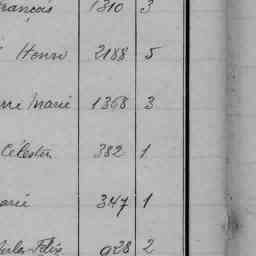 François 1310 3
Henri 2188 5
Marie 1368 3
Célestin 382 1
Marie 347 1
Jules Félix 928 2